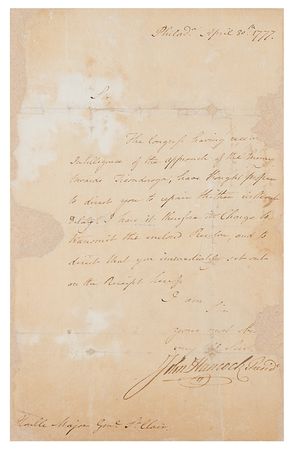 Philad.ᵃ April 30.th 1777.
Sir,
The Congress having rec
Intelligence of the Approach of the Enemy
towards Ticonderoga, have thought proper
to direct you to repair thither without
Delay. I have it therefore in Charge to
transmit the enclosed Resolve, and to
direct that you immediately set out
on the Receipt hereof.
I am Sir
your most
John Hancock Presid.
Honble Major Genl. St. Clair.